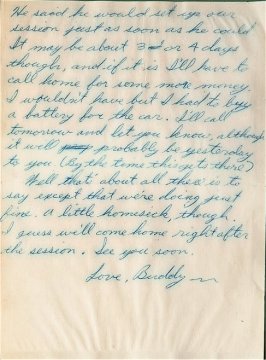 He said he would set up our
session just as soon as he could
It may be about 3 or 4 days
though, and if it is I'll have to
call home for some more money
I wouldn't have but I had to buy
a battery for the car. I'll call
tomorrow and let you know, although
it will probably be yesterday
to you (By the time this gets there)
Well that about all there is to
say except that we're doing just
fine. A little homesick, though.
I guess will come home right after
the session. See you soon.
Love, Buddy